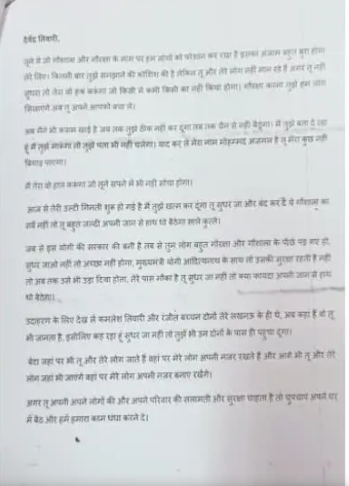 देवेंद्र तिवारी,
तूने ये जो गौशाला और गौरक्षा के नाम पर हम लोगों को परेशान कर रखा है इसका अंजाम बहुत बुरा होगा
तेरे लिए। कितनी बार तुझे समझाने की कोशिश की है लेकिन तू और तेरे लोग नहीं मान रहे हैं अगर तू नहीं
सुधरा तो तेरा वो हश्र करूंगा जो किसी ने कभी किसी का नहीं किया होगा। गौरक्षा करना तुझे हम लोग
सिखाएंगे अब तू अपने आपको बचा ले।
अब मैंने भी कसम खाई है जब तक तुझे ठीक नहीं कर दूंगा तब तक चैन से नहीं बैठूंगा। मैं तुझे बता दे रहा
हूं मैं तुझे मारूंगा तो तुझे पता भी नहीं चलेगा। याद कर ले मेरा नाम मोहम्मद अजमल है तू मेरा कुछ नहीं
बिगाड़ पाएगा।
मैं तेरा वो हाल करूंगा जो तूने सपने में भी नहीं सोचा होगा।
आज से तेरी उल्टी गिनती शुरू हो गई है मैं तुझे खत्म कर दूंगा तू सुधर जा और बंद कर दे ये गौशाला का
नहीं तो तू बहुत जल्दी अपनी जान से हाथ धो बैठेगा साले कुत्ते।
जब से इस योगी की सरकार की बनी है तब से तुम लोग बहुत गौरक्षा और गौशाला के पीछे पड़ गए हो,
सुधर जाओ नहीं तो अच्छा नहीं होगा, मुख्यमंत्री योगी आदित्यनाथ के साथ तो उसकी सुरक्षा रहती है नहीं
तो अब तक उसे भी उड़ा दिया होता, तेरे पास मौका है तू सुधर जा नहीं तो क्या फायदा अपनी जान से हाथ
धो बैठेगा।
उदाहरण के लिए देख ले कमलेश तिवारी और रंजीत बच्चन दोनों तेरे लखनऊ के ही थे, अब कहा हैं वो तू
भी जानता है, इसीलिए कह रहा हूं सुधर जा नहीं तो तुझे भी उन दोनों के पास ही पहुंचा दूंगा।
बेटा जहां पर भी तू और तेरे लोग जाते हैं वहां पर मेरे लोग अपनी नजर रखते हैं और आगे भी तू और तेरे
लोग जहां भी जाएंगे वहां पर मेरे लोग अपनी नजर बनाए रखेंगे।
अगर तू अपनी अपने लोगों की और अपने परिवार की सलामती और सुरक्षा चाहता है तो चुपचाप अपने घर
में बैठ और हमें हमारा काम धंधा करने दे।